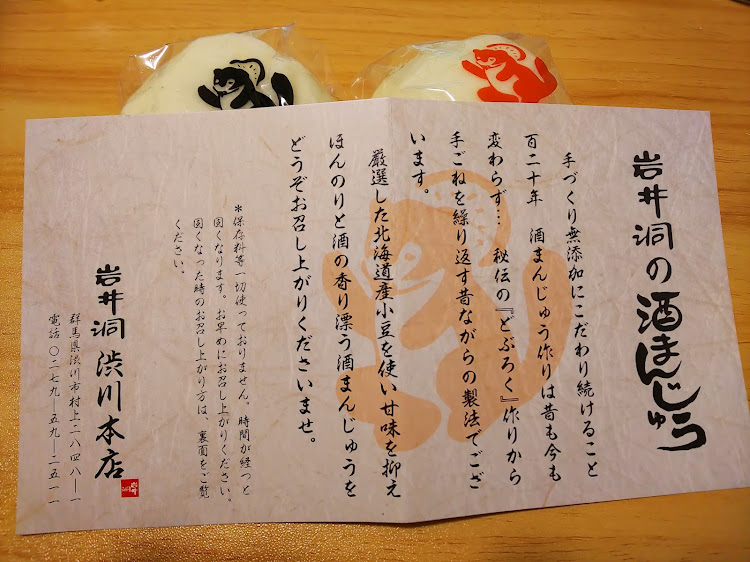 岩井洞の酒まんじゅう
手づくり無添加にこだわり続けること
百二十年　酒まんじゅう作りは昔も今も
変わらず…　秘伝の『どぶろく』作りから
手ごねを繰り返す昔ながらの製法でござ
います。
厳選した北海道産小豆を使い甘味を抑え
ほんのりと酒の香り漂う酒まんじゅうを
どうぞお召し上がりくださいませ。
＊保存料等一切使っておりません。時間が経つと
固くなります。お早めにお召し上がりください。
固くなった時のお召し上がり方は、裏面をご覧
ください。
岩井洞 渋川本店
群馬県渋川市村上二八四八ー一
電話〇二七九ー五九ー二五一一